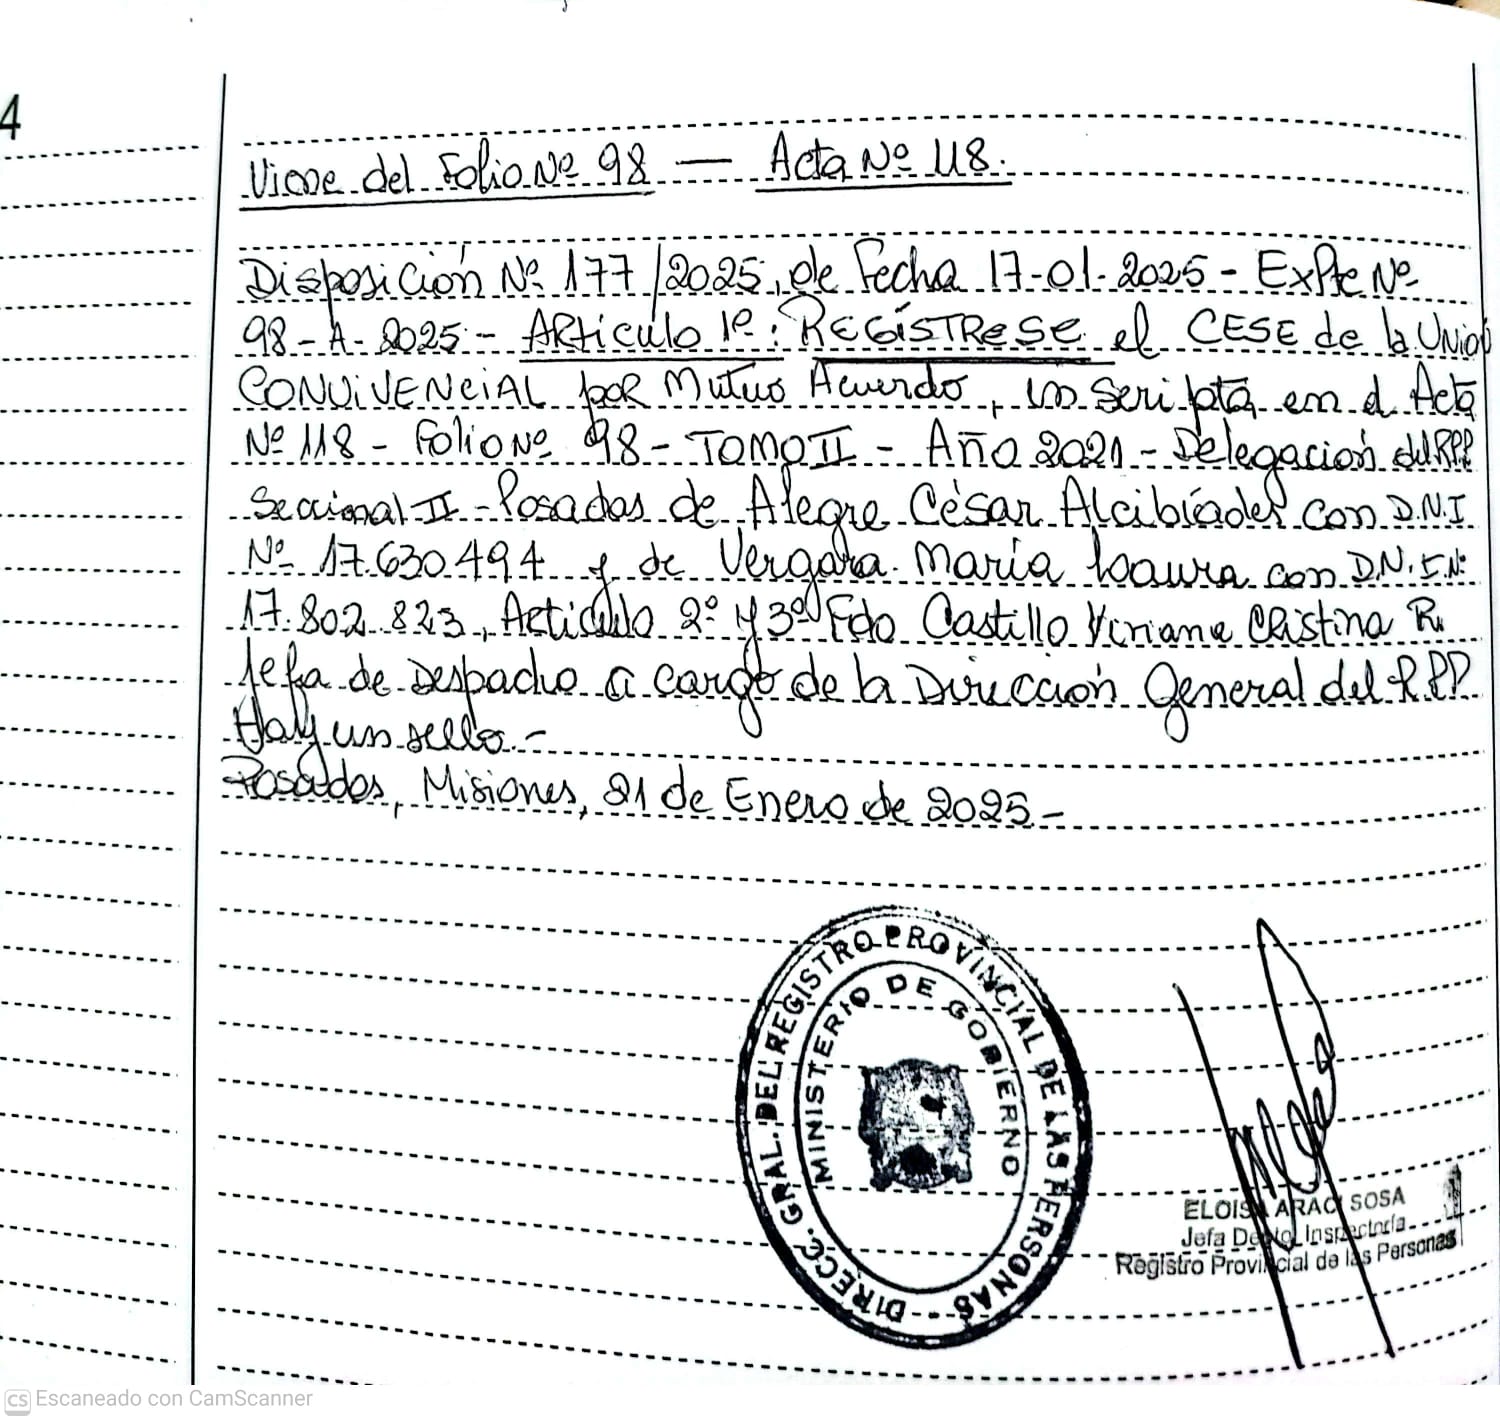 4
Viene del Folio Nº 98 — Acta Nº 118.
Disposición Nº 177/2025, de Fecha 17-01-2025 - ExPte Nº
98-A-2025 - ARtículo 1º: REGÍSTRESE el CESE de la UNIóN
CONVIVENCIAL poR Mutuo Acuerdo, inscripta en el Acta
Nº 118 - Folio Nº 98 - TOMO II - Año 2021 - Delegación del RPP
Seccional II - Posadas de Alegre César Alcibíades con D.N.I
Nº 17.630.494 y de Vergara María Laura con D.N.I.Nº
17.802.823, Artículo 2º y 3º Fdo Castillo Viviana Cristina R.
Jefa de Despacho a cargo de la Dirección General del RPP
Hay un sello.-
Posadas, Misiones, 21 de Enero de 2025.-
DIRECC. GRAL. DEL REGISTRO PROVINCIAL DE LAS PERSONAS
MINISTERIO DE GOBIERNO
ELOISA ARACI SOSA
Jefa Depto. Inspectoría
Registro Provincial de las Personas
CS Escaneado con CamScanner